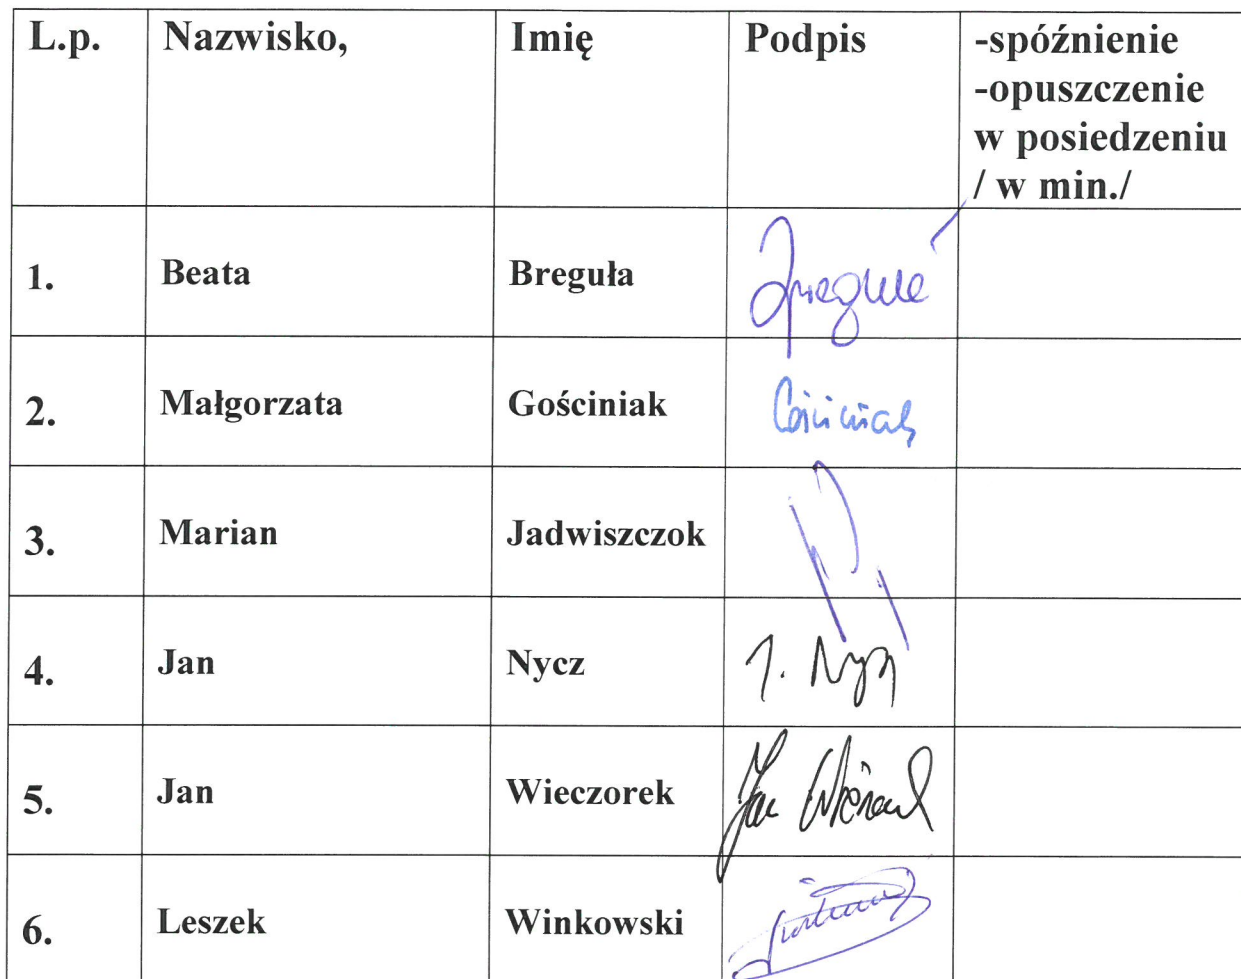 L.p. Nazwisko, Imię Podpis -spóźnienie
-opuszczenie
w posiedzeniu
/ w min./
1. Beata Breguła
2. Małgorzata Gościniak Gościniak
3. Marian Jadwiszczok
4. Jan Nycz J. Nycz
5. Jan Wieczorek Jan Wieczorek
6. Leszek Winkowski